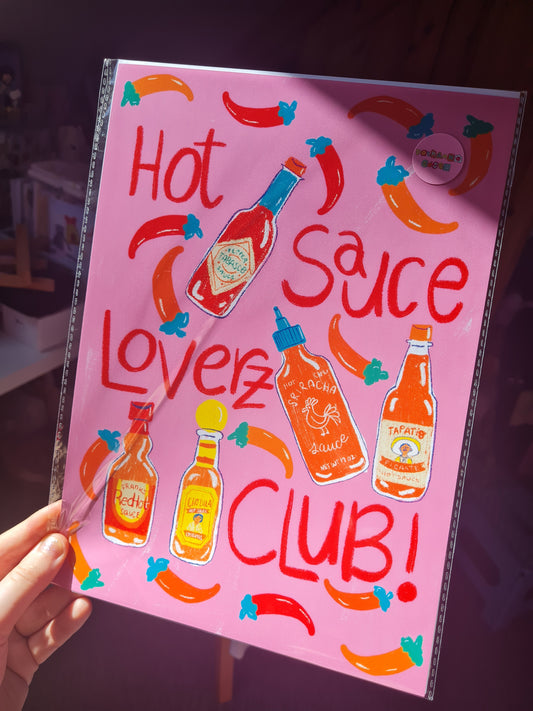 Hot
Sauce
Loverz
CLUB!
TABASCO
SAUCE
HOT CHILI
SRIRACHA
Sauce
NET WT.
TAPATÍO
PICANTE
HOT SAUCE
FRANK'S
RedHot
SAUCE
CHOLULA